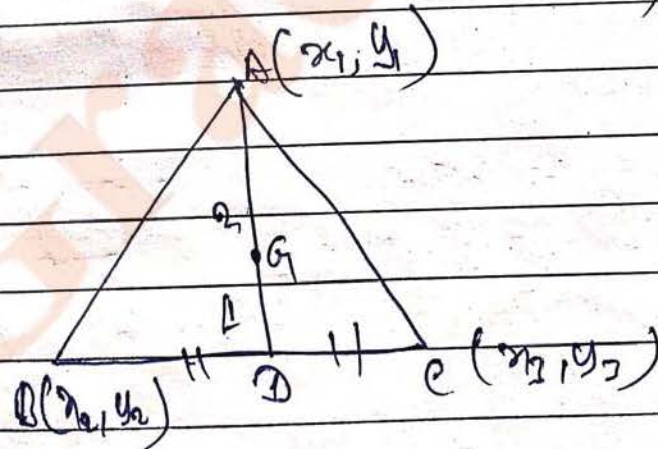 A (x₁, y₁)
2
G
1
B(x₂, y₂)
D
C (x₃, y₃)